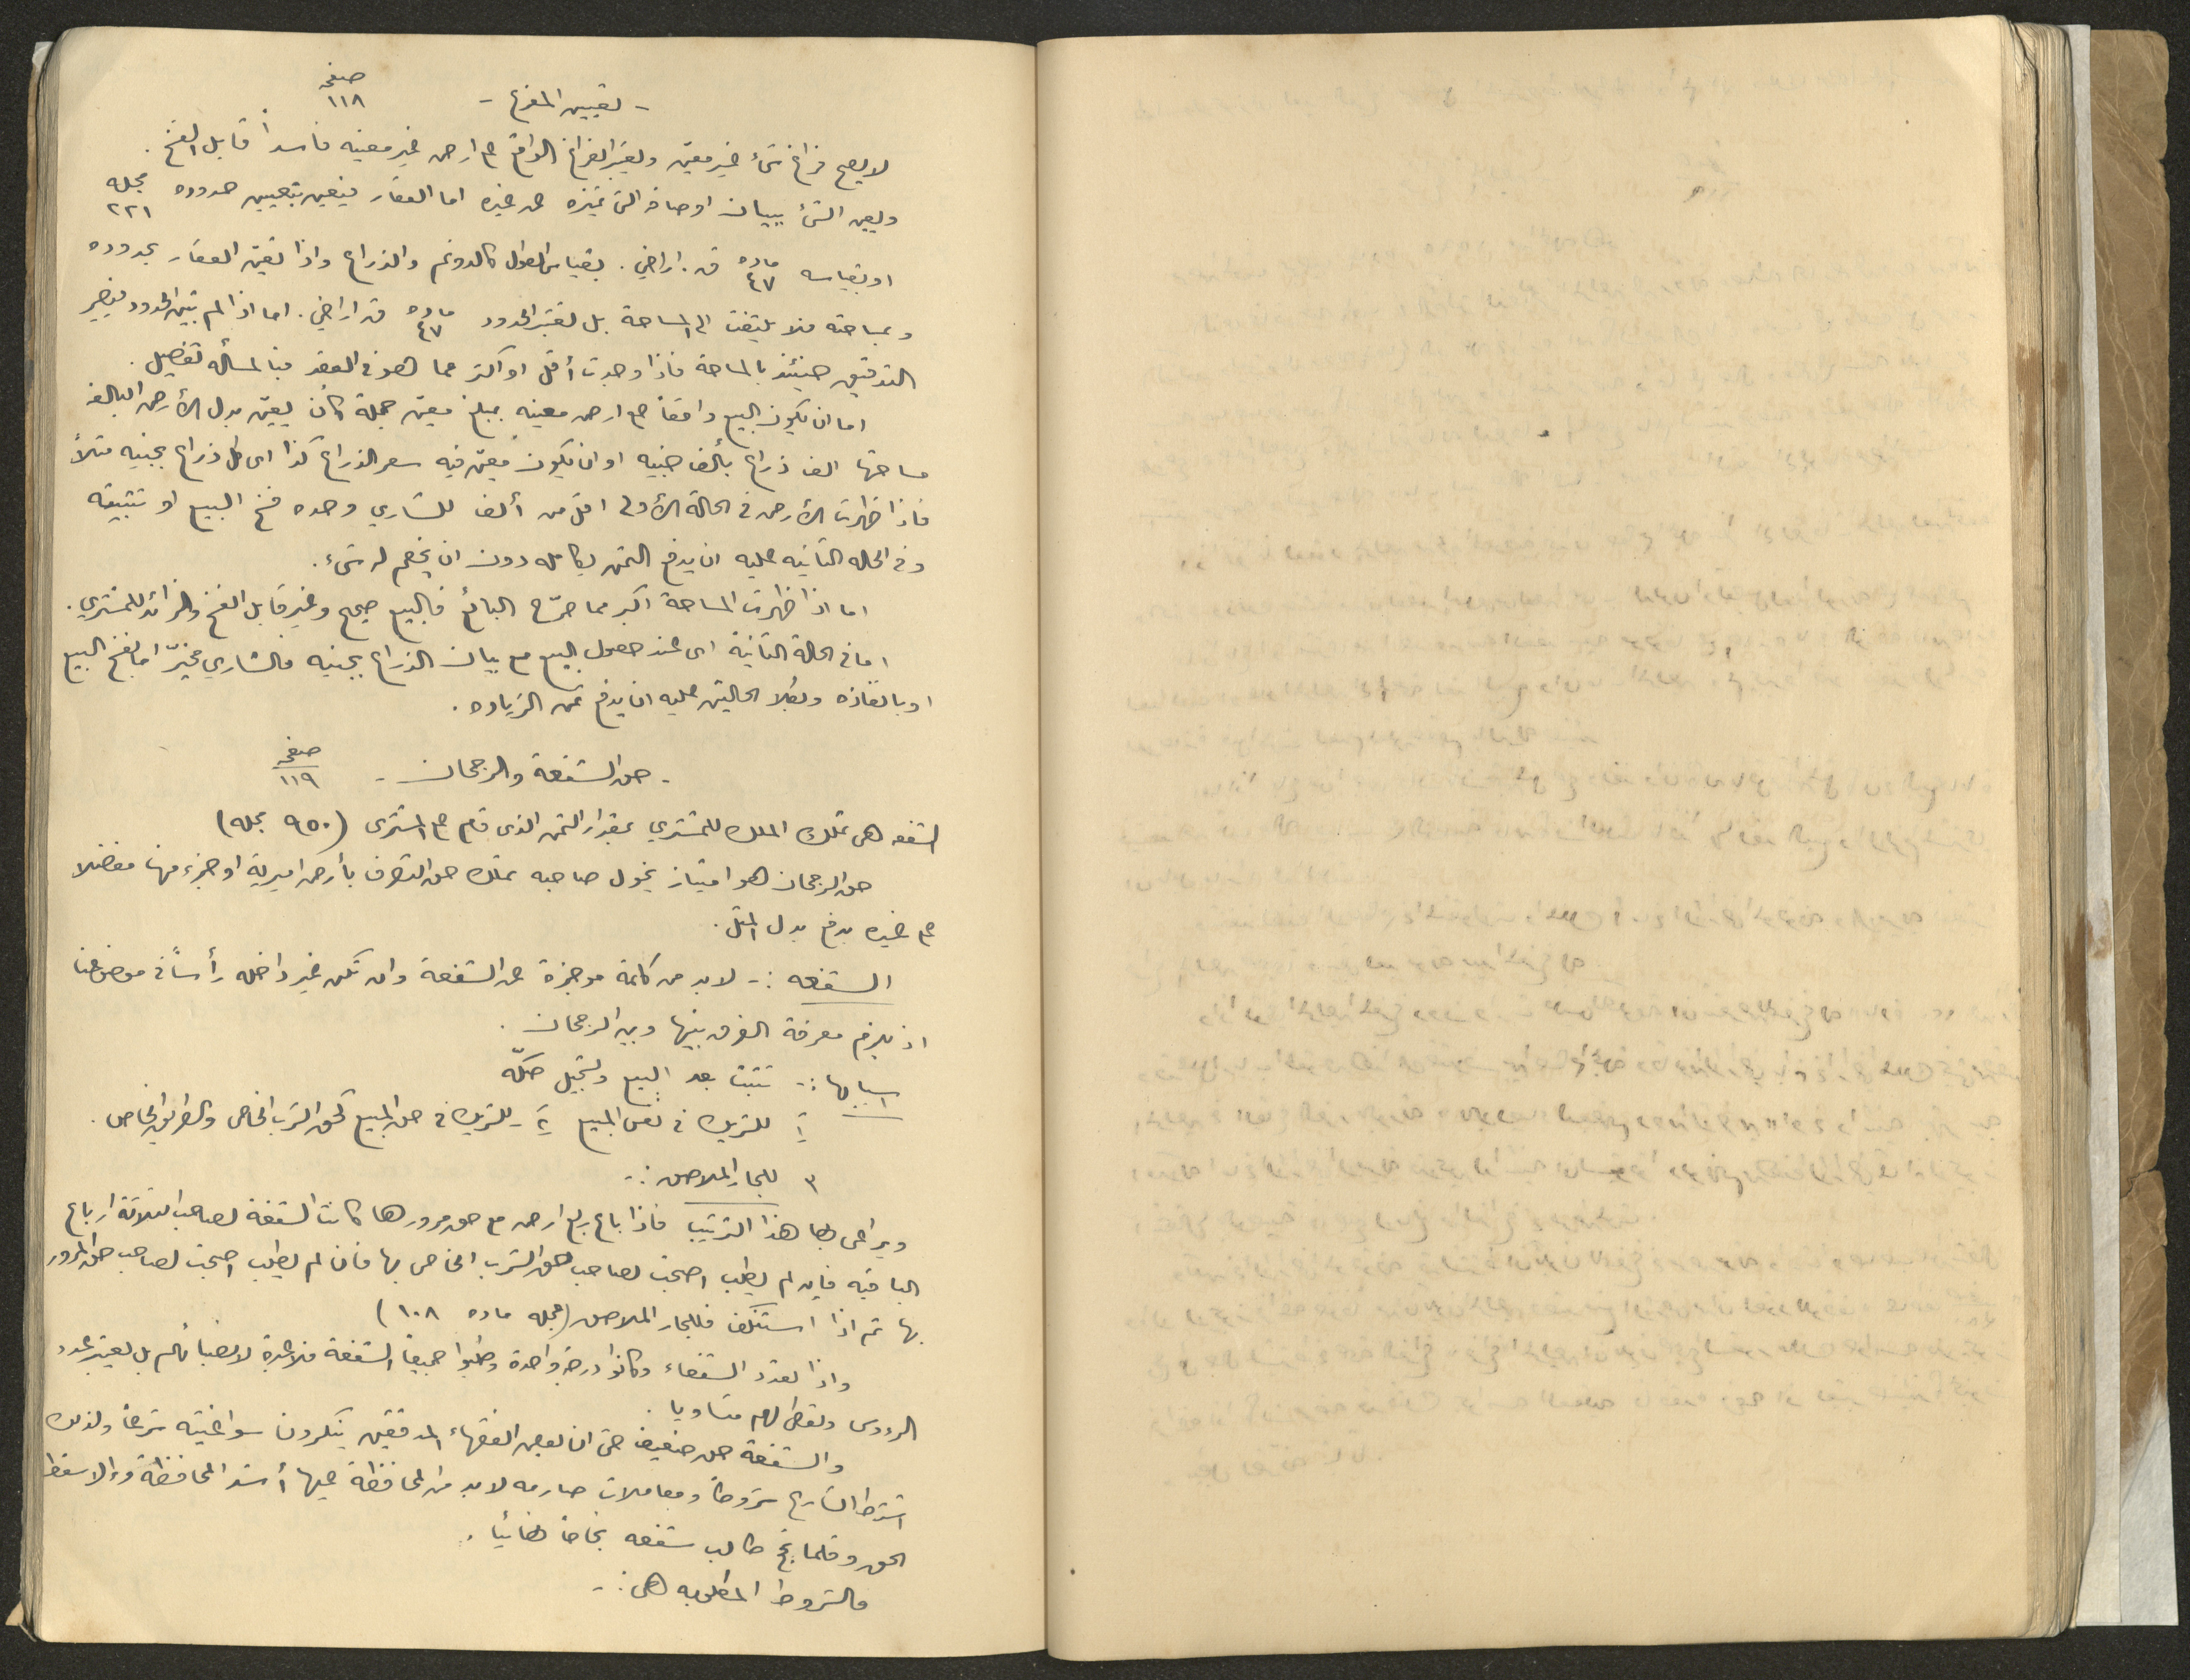 - تعيين المفرغ - صفحة ١١٨
لا يصح فراغ شيء غير معين ويعتبر الفراغ الواقع على ارض غير معينه فاسداً قابل الفسخ .
ويعين الشئ ببيان اوصافه التي تميزه عن غيره اما العقار فيتعين بتعيين حدوده مجله ٢٢١
او بقياسه ماده ٤٧ ق . اراضي . بقياس الطول كالدونم والذراع واذا تعين العقار بحدوده
وبمساحته فلا يلتفت الى المساحة بل تعتبر الحدود ماده ٤٧ ق اراضي . اما اذا لم تبين الحدود فيصير
التدقيق حينئذ بالمساحة فاذا وجدت أقل او اكثر مما هو في العقد فبالمسأله تفصيل .
اما ان يكون البيع واقعاً على ارض معينه بمبلغ معين جملة كأن يعين بدل الأرض البالغ
مساحتها الف ذراع بألف جنيه او ان يكون معين فيه سعر الذراع كذا اى كل ذراع بجنيه مثلاً
فاذا ظهرت الأرض في الحالة الأولى اقل من ألف للشاري وحده فسخ البيع او تثبيته
وفي الحاله الثانيه عليه ان يدفع الثمن بكامله دون ان يخصم له شيء .
اما اذا ظهرت المساحة اكبر مما صرّح البائع فالبيع صحيح وغير قابل الفسخ والزائد للمشتري .
اما في الحالة الثانية اى عند حصول البيع مع بيان الذراع بجنيه فالشاري مخيّر اما بفسخ البيع
او بانفاذه وبكلا الحالين عليه ان يدفع ثمن الزياده .
- حق الشفعة والرجحان - صفحة ١١٩
الشفعه هى تملك الملك للمشتري بمقدار الثمن الذى قام على المشترى (٩٥٠ مجله)
حق الرجحان هو امتياز يخول صاحبه تملك حق التصرف بأرض اميرية او جزء منها مفضلا
على غيره بدفع بدل المثل .
الشفعه :- لا بد من كلمة موجزة عن الشفعة وان تكن غير داخله رأساً في موضوعنا
اذ يلزم معرفة الفرق بينها وبين الرجحان .
اسبابها :- تثبت بعد البيع وتسجيل صكّه
١ - للشريك في نفس المبيع ٢ - للشريك في حق المبيع كحق الشرب الخاص والطريق الخاص .
٣ للجار الملاصق :-
ويراعى بها هذا الترتيب فاذا باع ربع ارض مع حق مرورها كانت الشفعة لصاحب الثلاثة ارباع
الباقيه فان لم يطلب اصبحت لصاحب حق الشرب الخاص بها فان لم يطلب اصبحت لصاحب حق المرور
بها ثم اذا استنكف فللجار الملاصق (مجله ماده ١٠٨)
واذا تعدد الشفعاء وكانوا درجة واحدة وطلبوا جميعاً الشفعة فلا عبرة لانصبائهم بل يعتبر عدد
الرؤوس وتعطى لهم متساويا .
والشفعة حق ضعيف حتى ان بعض الفقهاء المدققين ينكرون سواغيته شرعاً ولذلك
اشترط الشارع شروطاً ومعاملات صارمه لا بد من المحافظة عليها أشد المحافظة والا سقط
الحق وقلما نجح طالب شفعه نجاحاً نهائيا .
فالشروط المطلوبه هى :-